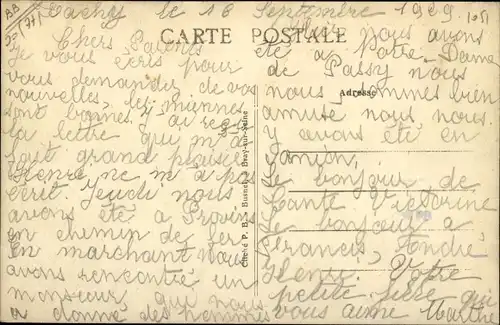 Cachy le 16 Septembre 1929
CARTE POSTALE
Adresse
Cliché P. B. - Bray-sur-Seine
Chers Parents
Je vous écris pour
vous demander de vos
nouvelles, les miennes
sont bonnes. J'ai reçu
la lettre qui m'a
fait grand plaisir
Henri ne m'a pas
écrit. Jeudi nous
avons été à Provins
en chemin de fer
En marchant nous
avons rencontré un
monsieur qui nous
a donné des pommes
nous avons
été à Notre-Dame
de Passy nous
nous sommes bien
amusé nous nous
y avons été en
camion,
le bonjour de
tante Victorine
le bonjour à
Francis, André
Henri. Votre
petite fille qui
vous aime Marthe